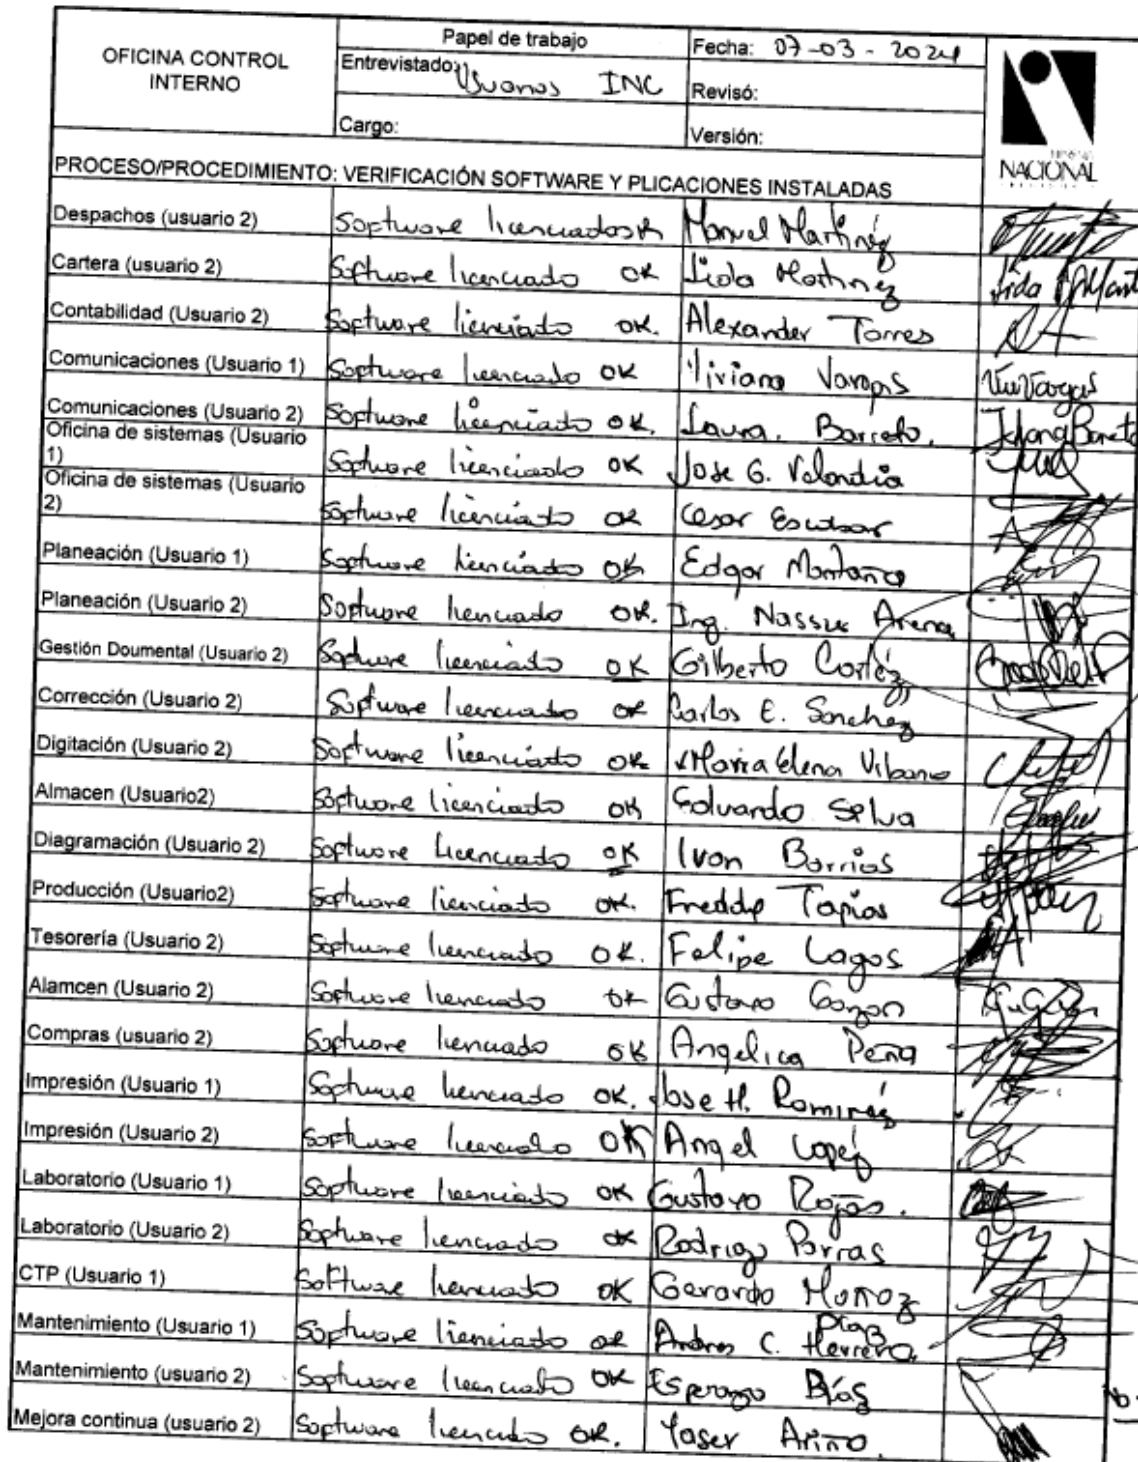 OFICINA CONTROL
INTERNO
Papel de trabajo
Entrevistado: Usuarios INC
Cargo:
Fecha: 07-03-2024
Revisó:
Versión:
NACIONAL
PROCESO/PROCEDIMIENTO: VERIFICACIÓN SOFTWARE Y PLICACIONES INSTALADAS
Despachos (usuario 2) Software licenciados Manuel Martinez
Cartera (usuario 2) Software licenciado OK Lida Martinez
Contabilidad (Usuario 2) Software licenciado OK. Alexander Torres
Comunicaciones (Usuario 1) Software licenciado OK Viviana Vargas
Comunicaciones (Usuario 2) Software licenciado OK. Laura. Barreto.
Oficina de sistemas (Usuario
1) Software licenciado OK Jose G. Velandia
Oficina de sistemas (Usuario
2) Software licenciado OK Cesar Escobar
Planeación (Usuario 1) Software licenciado OK Edgar Montaño
Planeación (Usuario 2) Software licenciado OK. Ing. Arena
Gestión Doumental (Usuario 2) Software licenciado OK Gilberto Cortéz
Corrección (Usuario 2) Software licenciado OK Carlos E. Sanchez
Digitación (Usuario 2) Software licenciado OK Maria Elena
Almacen (Usuario2) Software licenciado OK Eduardo Selva
Diagramación (Usuario 2) Software licenciado OK Ivon Barrios
Producción (Usuario2) Software licenciado OK. Freddy Tapias
Tesorería (Usuario 2) Software licenciado OK. Felipe Lagos
Alamcen (Usuario 2) Software licenciado OK Gustavo Garzon
Compras (usuario 2) Software licenciado OK Angelica Peña
Impresión (Usuario 1) Software licenciado OK. Jose H. Ramirez
Impresión (Usuario 2) Software licenciado OK Angel Lopez
Laboratorio (Usuario 1) Software licenciado OK Gustavo Rojas.
Laboratorio (Usuario 2) Software licenciado OK Rodrigo Porras
CTP (Usuario 1) Software licenciado OK Gerardo Muñoz
Mantenimiento (Usuario 1) Software licenciado OK Andres C. Herrera.
Mantenimiento (usuario 2) Software licenciado OK Esperanza
Mejora continua (usuario 2) Software licenciado OK. Yaser Ariño.